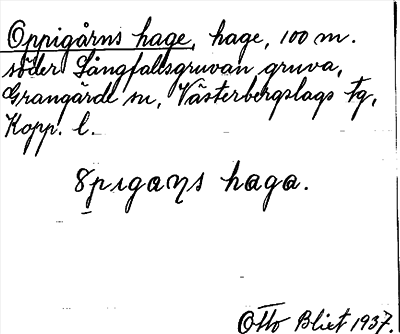 Oppigårns hage, hage, 100 m.
söder Långfallsgruvan gruva,
Grangärde sn, Västerbergslags tg,
Kopp. l.
haga.
Otto Blixt 1937.